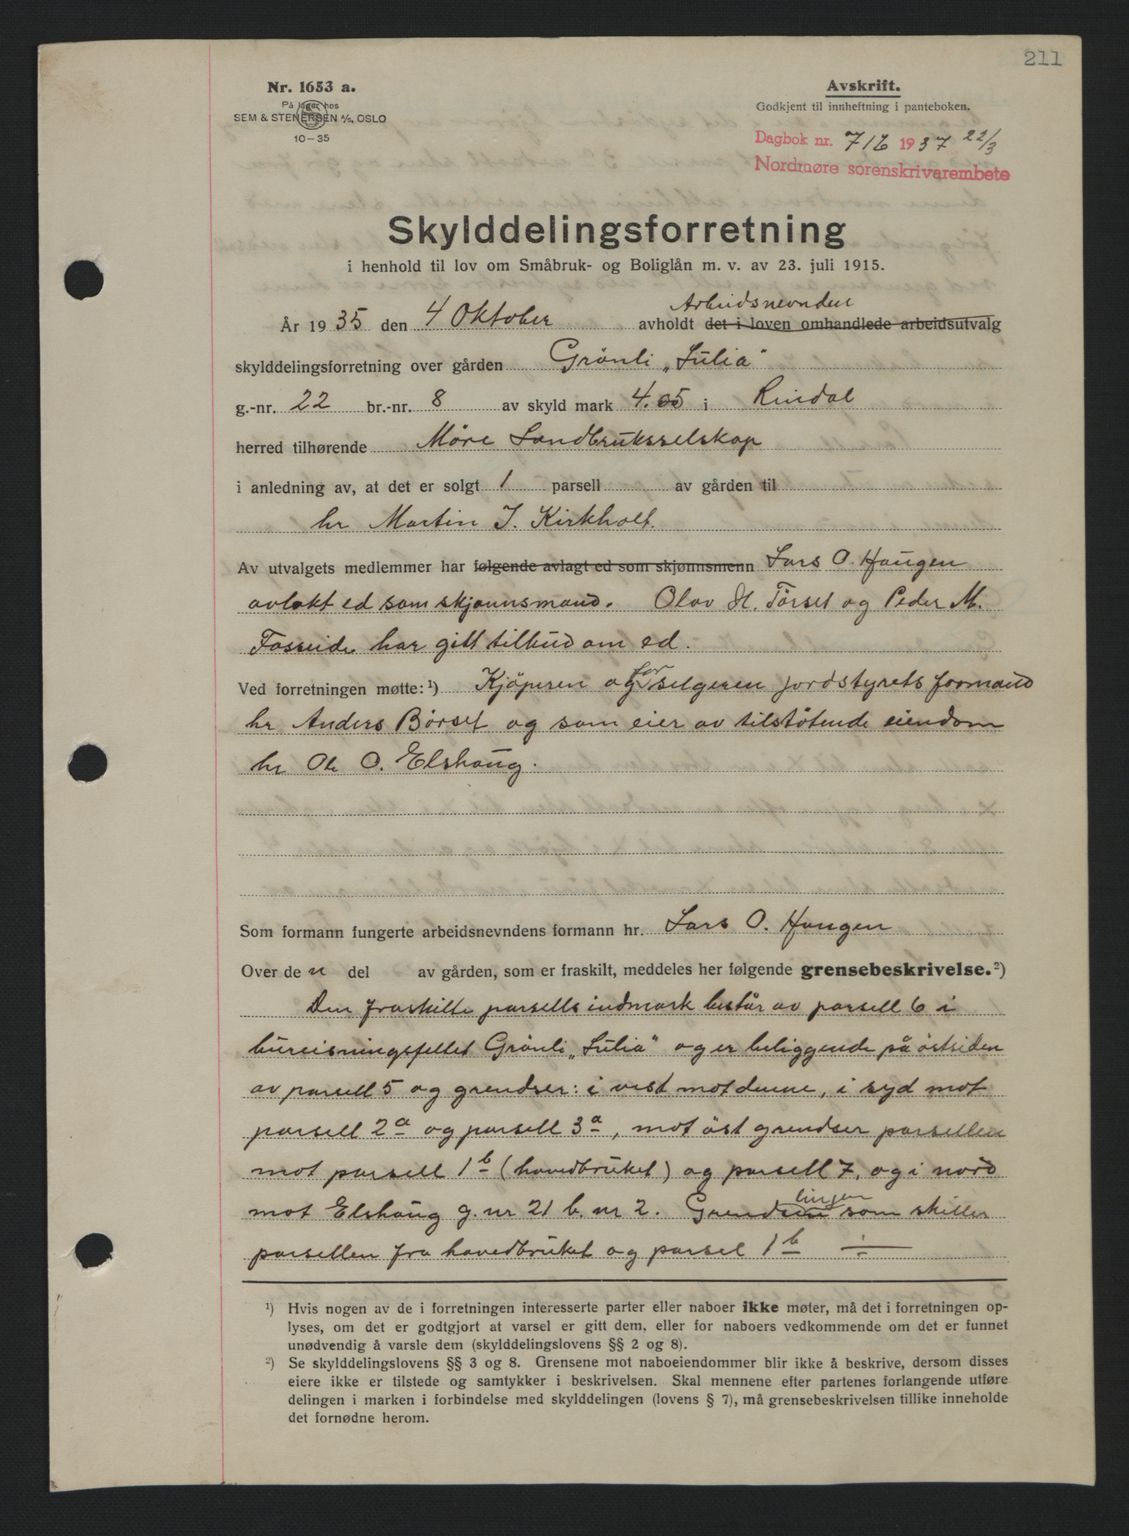 211
Nr. 1653 a.
På lager hos
SEM & STENERSEN A/S, OSLO
10–35
Avskrift.
Godkjent til innheftning i panteboken.
Dagbok nr. 716 1937 22/3
Nordmøre sorenskrivarembete
Skylddelingsforretning
i henhold til lov om Småbruk- og Boliglån m. v. av 23. juli 1915.
Arbeidsnevnden
År 1935 den 4 Oktober avholdt det i loven omhandlede arbeidsutvalg
skylddelingsforretning over gården Grönli „Lülia"
g.-nr. 22 br.-nr. 8 av skyld mark 4.05 i Rindal
herred tilhørende Møre Landbruksselskap
i anledning av, at det er solgt 1 parsell av gården til
hr Martin J. Kirkholt.
Av utvalgets medlemmer har følgende avlagt ed som skjønnsmenn Lars O. Haugen
avlakt ed som skjønnsmand. Olav H. Tørset og Peder M.
Fosseide har gitt tilbud om ed.
for
Ved forretningen møtte:¹) Kjöperen og selgeren jordstyrets formand
hr Anders Børset og som eier av tilstötende eiendom
hr Ole O. Elshaug.
Som formann fungerte arbeidsnevndens formann hr. Lars O. Haugen
Over den del av gården, som er fraskilt, meddeles her følgende grensebeskrivelse.²)
Den fraskilte parsells indmark består av parsell 6 i
bureisningsfeltet Grönli „Lülia" og er beliggende på östsiden
av parsell 5 og grendser: i vest mot denne, i syd mot
parsell 2a og parsell 3a, mot öst grendser parsellen
mot parsell 1b (hovedbruket) og parsell 7, og i nord
linjen
mot Elshaug g. nr 21 b. nr 2. Grendsen som skiller
parsellen fra hovedbruket og parsel 1b ÷
¹) Hvis nogen av de i forretningen interesserte parter eller naboer ikke møter, må det i forretningen op-
lyses, om det er godtgjort at varsel er gitt dem, eller for naboers vedkommende om det er funnet
unødvendig å varsle dem (skylddelingslovens §§ 2 og 8).
²) Se skylddelingslovens §§ 3 og 8. Grensene mot naboeiendommer blir ikke å beskrive, dersom disses
eiere ikke er tilstede og samtykker i beskrivelsen. Skal mennene efter partenes forlangende utføre
delingen i marken i forbindelse med skylddelingen (lovens § 7), må grensebeskrivelsen tillike inneholde
det fornødne herom.